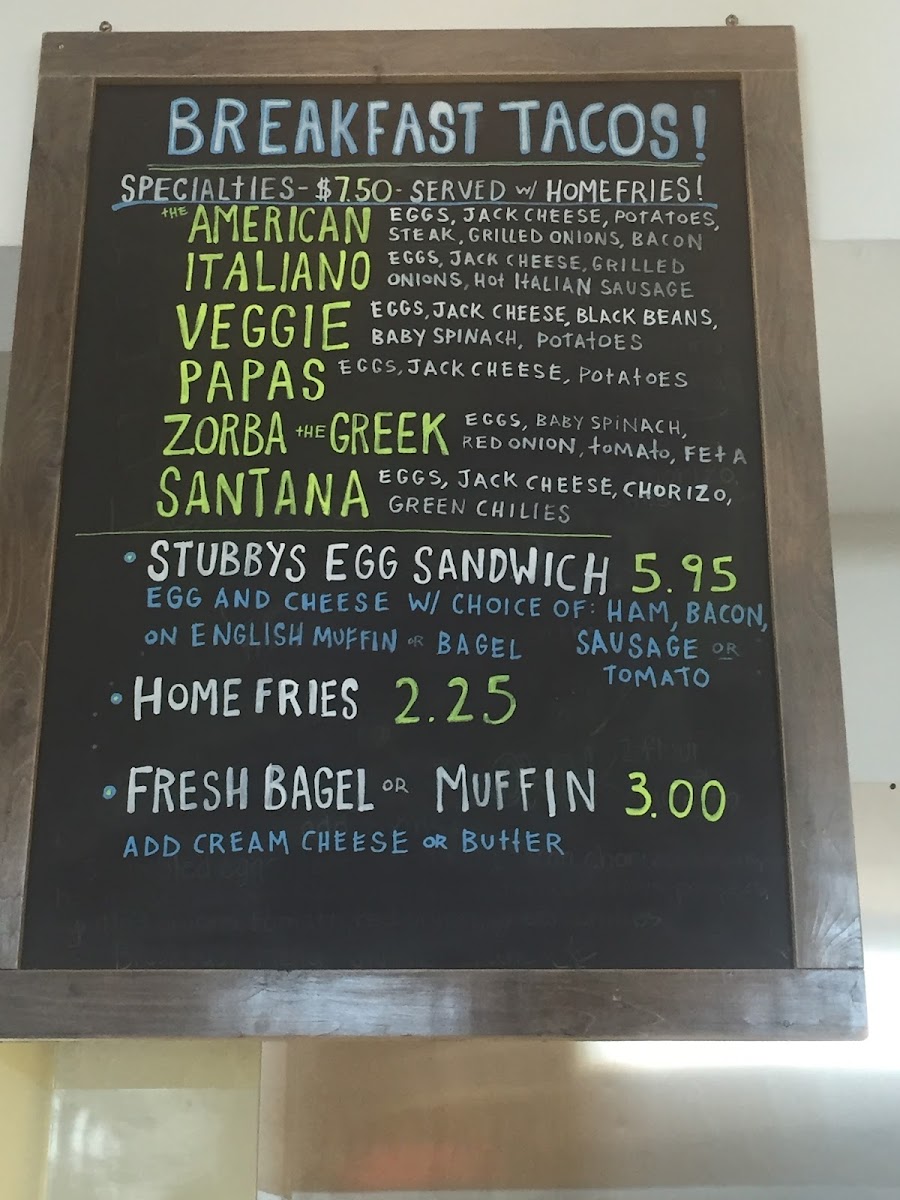 BREAKFAST TACOS!
SPECIALTIES - $7.50 - SERVED w/ HOMEFRIES!
THE AMERICAN EGGS, JACK CHEESE, POTATOES,
STEAK, GRILLED ONIONS, BACON
ITALIANO EGGS, JACK CHEESE, GRILLED
ONIONS, HOT ITALIAN SAUSAGE
VEGGIE EGGS, JACK CHEESE, BLACK BEANS,
BABY SPINACH, POTATOES
PAPAS EGGS, JACK CHEESE, POTATOES
ZORBA THE GREEK EGGS, BABY SPINACH,
RED ONION, TOMATO, FETA
SANTANA EGGS, JACK CHEESE, CHORIZO,
GREEN CHILIES
• STUBBYS EGG SANDWICH 5.95
EGG AND CHEESE W/ CHOICE OF: HAM, BACON,
ON ENGLISH MUFFIN OR BAGEL SAUSAGE OR
TOMATO
• HOME FRIES 2.25
• FRESH BAGEL OR MUFFIN 3.00
ADD CREAM CHEESE OR BUTTER